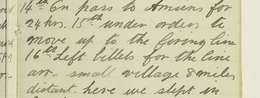 14th On pass to Amiens for
24 hrs. 15th under orders to
move up to the firing line
16th left billets for the line
arr. small village 8 miles
distant. here we slept in